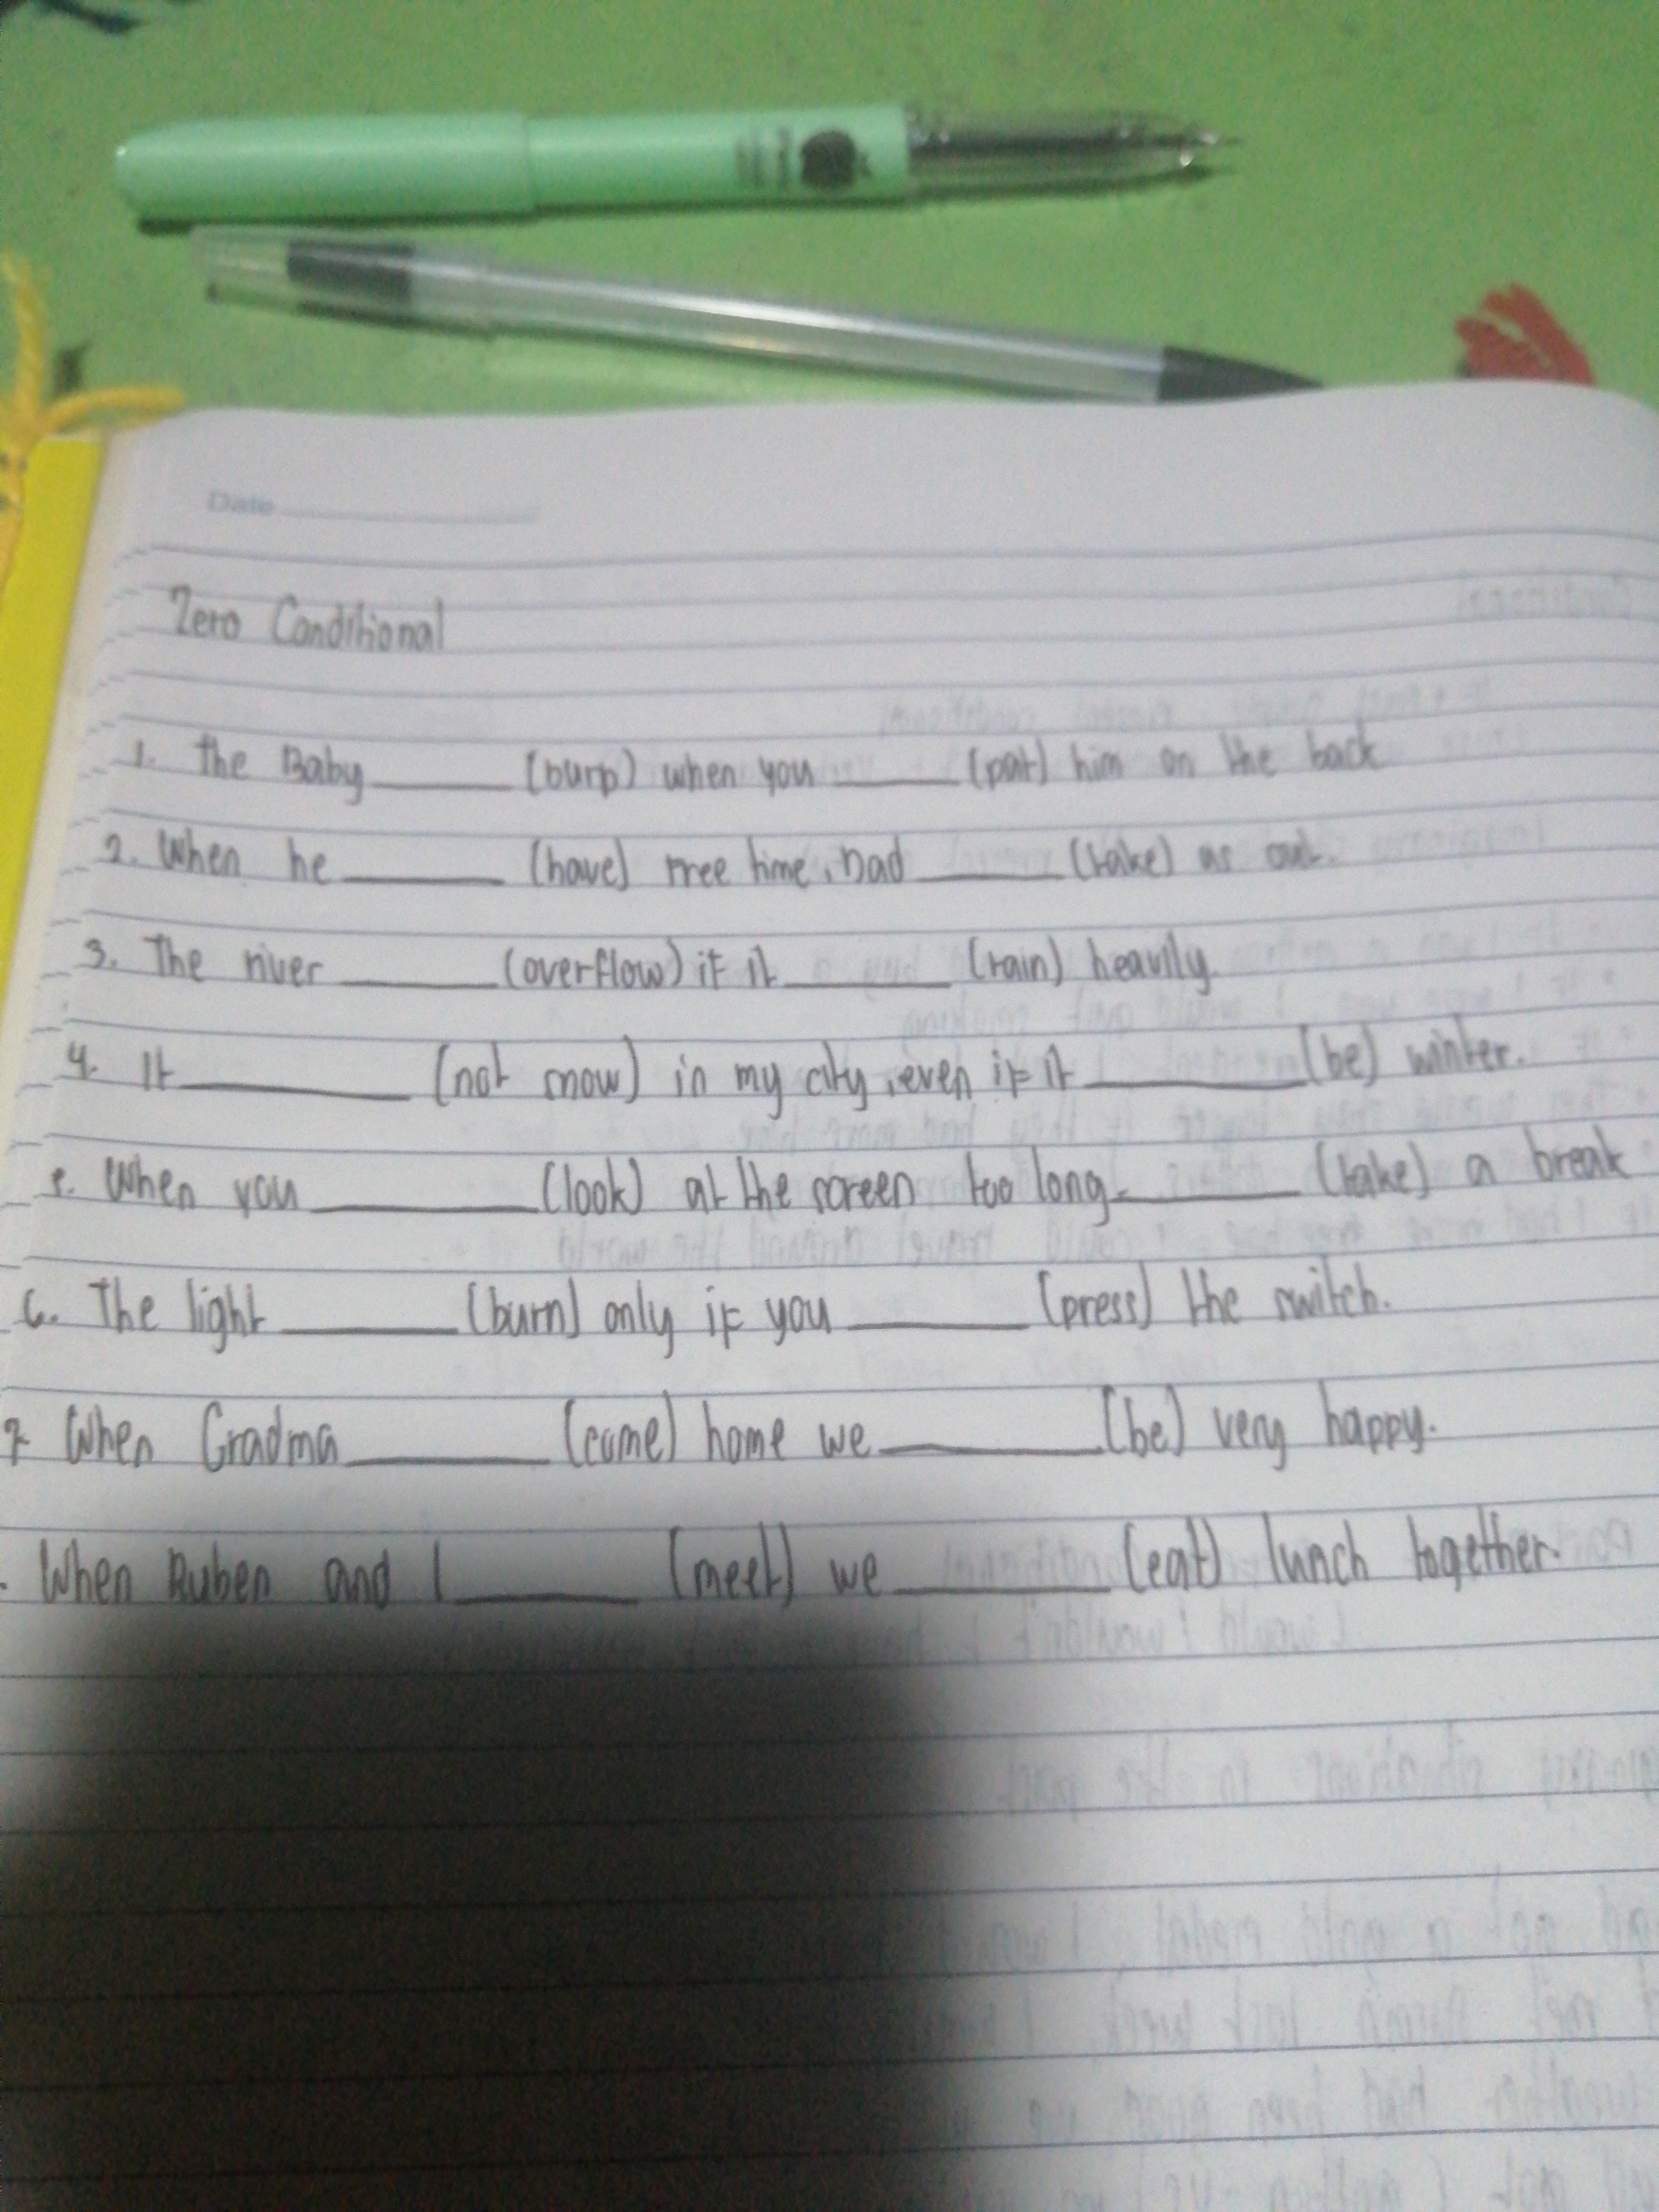 Date
Zero Conditional
1. The Baby ______ (burp) when you ______ (pat) him on the back
2. When he ______ (have) free time, Dad ______ (take) us out.
3. The river ______ (overflow) if it ______ (rain) heavily.
4. It ______ (not snow) in my city, even if it ______ (be) winter.
5. When you ______ (look) at the screen too long. ______ (take) a break
6. The light ______ (burn) only if you ______ (press) the switch.
7. When Gradma ______ (come) home we ______ (be) very happy.
. When Ruben and I ______ (meet) we ______ (eat) lunch together.